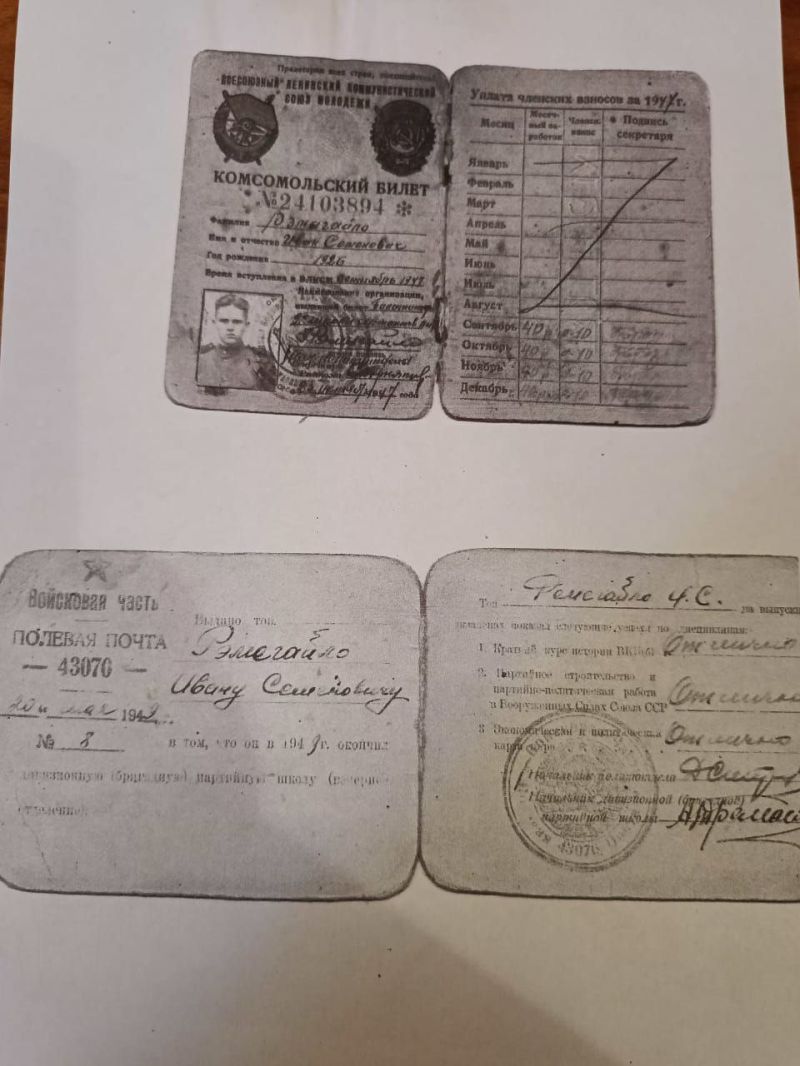 Пролетарии всех стран, соединяйтесь
ВСЕСОЮЗНЫЙ ЛЕНИНСКИЙ КОММУНИСТИЧЕСКИЙ
СОЮЗ МОЛОДЕЖИ
КОМСОМОЛЬСКИЙ БИЛЕТ
№24103894
Фамилия Рэмагайло
Имя и отчество Иван Семенович
Год рождения 1926
Время вступления в ВЛКСМ Сентябрь 1947
Наименование организации,
выдавшей билет
1947 года
Уплата членских взносов за 1947 г.
Месяц Месяч-ный за-работок Членск. взнос Подпись секретаря
Январь
Февраль
Март
Апрель
Май
Июнь
Июль
Август
Сентябрь 40 0-10
Октябрь 40 0-10
Ноябрь 40 0-10
Декабрь
Войсковая часть
ПОЛЕВАЯ ПОЧТА
— 43076 —
20 " мая 1949
№ 8
Выдано тов.
Рэмагайло
Ивану Семеновичу
в том, что он в 1949 г. окончил
дивизионную (бригадную) партийную школу (вечернее
отделение)
Тов. Рэмагайло И.С. на выпускн
экзаменах показал следующие успехи по дисциплинам:
1. Краткий курс истории ВКП(б) Отлично
2. Партийное строительство и
партийно-политическая работа
в Вооруженных Силах Союза ССР Отлично
3. Экономическая и политическая
карта мира Отлично
Начальник политотдела
Начальник дивизионной (бригадной)
партийной школы
43076